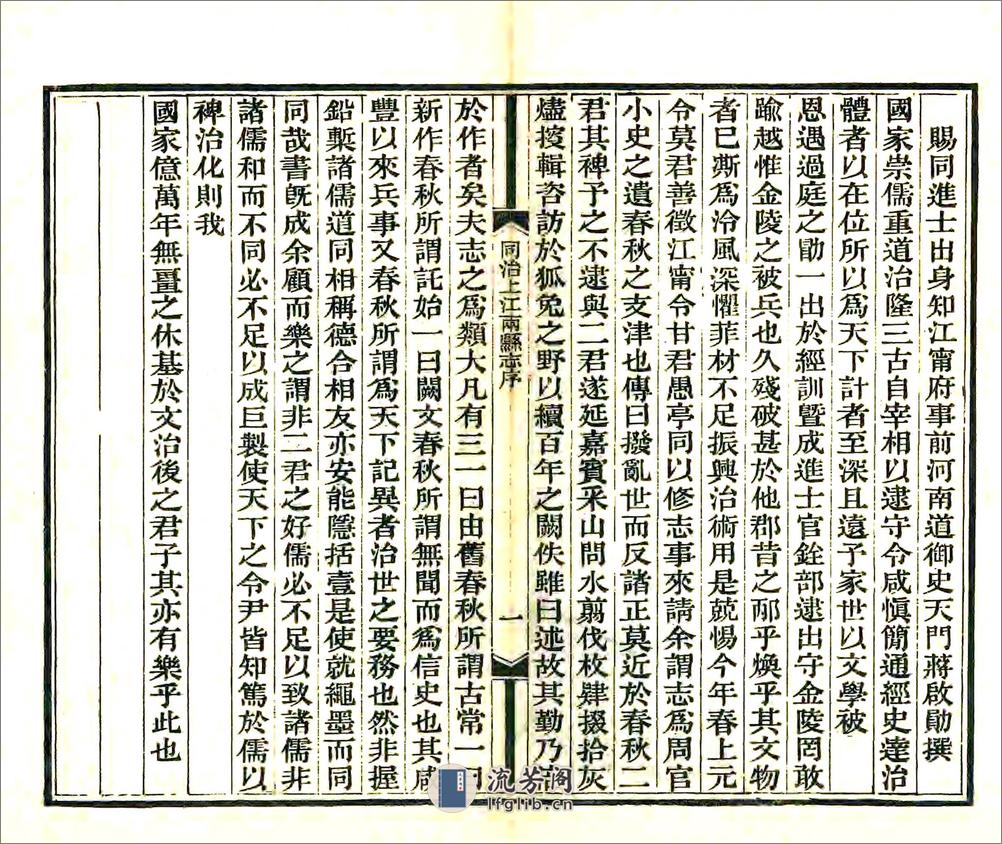 賜同進士出身知江甯府事前河南道御史天門蔣啟勛撰
國家崇儒重道治隆三古自宰相以逮守令咸愼簡通經史達治
體者以在位所以爲天下計者至深且遠予家世以文學被
恩遇過庭之勖一出於經訓曁成進士官銓部逮出守金陵罔敢
踰越惟金陵之被兵也久殘破甚於他郡昔之郁乎煥乎其文物
者已澌爲泠風深懼菲材不足振興治術用是兢惕今年春上元
令莫君善徵江甯令甘君愚亭同以修志事來請余謂志爲周官
小史之遺春秋之支津也傳曰撥亂世而反諸正莫近於春秋二
君其裨予之不逮與二君遂延嘉賓采山問水翦伐枚肄掇拾灰
燼搜輯咨訪於狐兔之野以續百年之闕佚雖曰述故其勤乃
同治上江兩縣志序
一
於作者矣夫志之爲類大凡有三一曰由舊春秋所謂古常一曰
新作春秋所謂託始一曰闕文春秋所謂無聞而爲信史也其咸
豐以來兵事又春秋所謂爲天下記異者治世之要務也然非握
鉛槧諸儒道同相稱德合相友亦安能隱括壹是使就繩墨而同
同哉書旣成余顧而樂之謂非二君之好儒必不足以致諸儒非
諸儒和而不同必不足以成巨製使天下之令尹皆知篤於儒以
裨治化則我
國家億萬年無疆之休基於文治後之君子其亦有樂乎此也
流芳阁
lfglib.cn